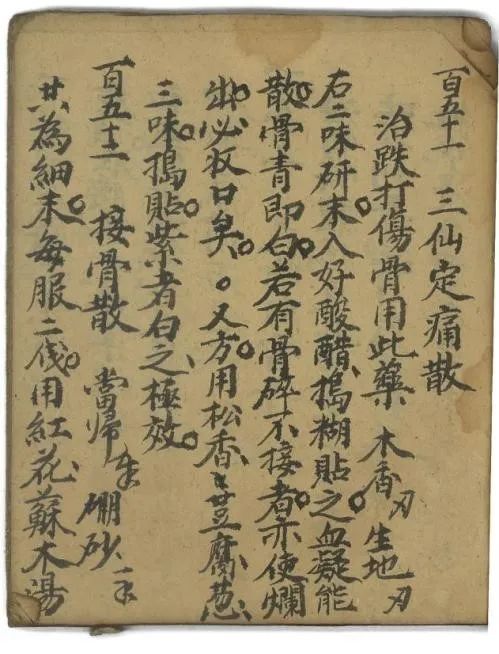 百五十一 三仙定痛散
治跌打傷骨用此藥。木香刃生地刃
右二味研末入好酸醋搗糊貼之血凝能
散骨青即白若有骨碎不接者。亦使爛
出必收口矣。。又方用松香豆腐葱
三味。搗貼紫者白之極效。
百五十二 接骨散 當歸 硼砂
共為細末。每服二用紅花蘇木湯